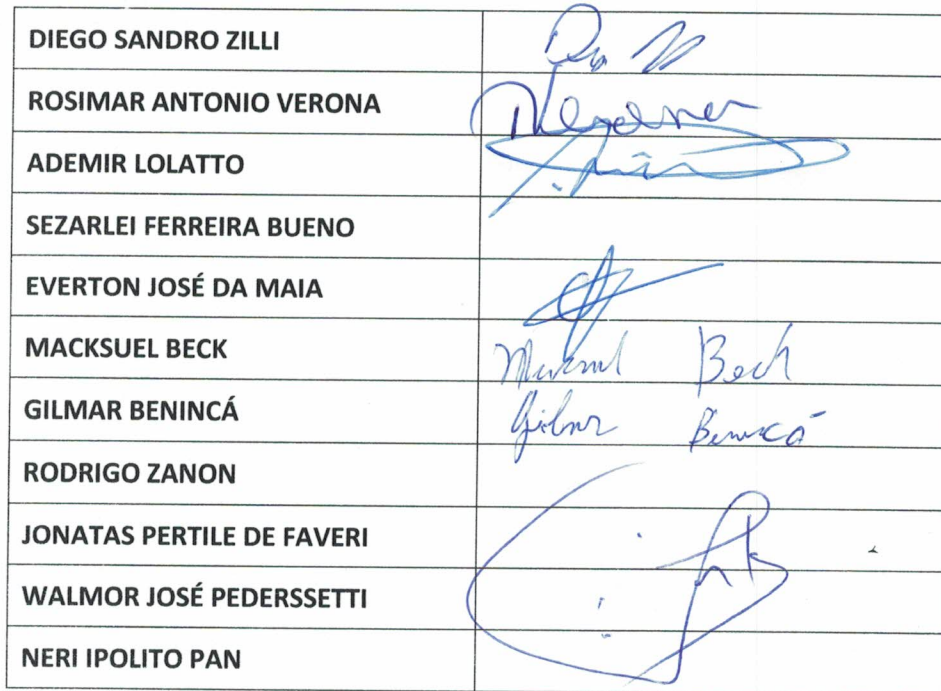 DIEGO SANDRO ZILLI
ROSIMAR ANTONIO VERONA
ADEMIR LOLATTO
SEZARLEI FERREIRA BUENO
EVERTON JOSÉ DA MAIA
MACKSUEL BECK Beck
GILMAR BENINCÁ Gilmar Benincá
RODRIGO ZANON
JONATAS PERTILE DE FAVERI
WALMOR JOSÉ PEDERSSETTI
NERI IPOLITO PAN